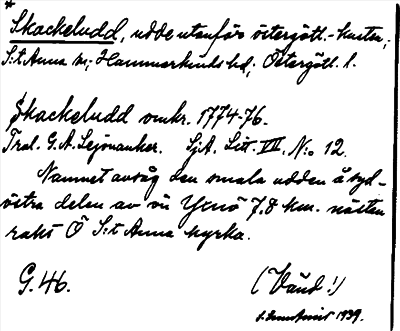 *
Skackeludd, udde utanför östergötl.-kusten,
S:t Anna sn; Hammarkinds hd, Östergötl. l.
Skackeludd omkr. 1774-76.
Tral. G.A. Lejonanker. SjA. Litt. VII, No: 12.
Namnet avsåg den smala udden å syd-
västra delen av ön Yxnö 7,8 km. nästan
rakt Ö S:t Anna kyrka.
G. 46.
(Vänd!)
1939.